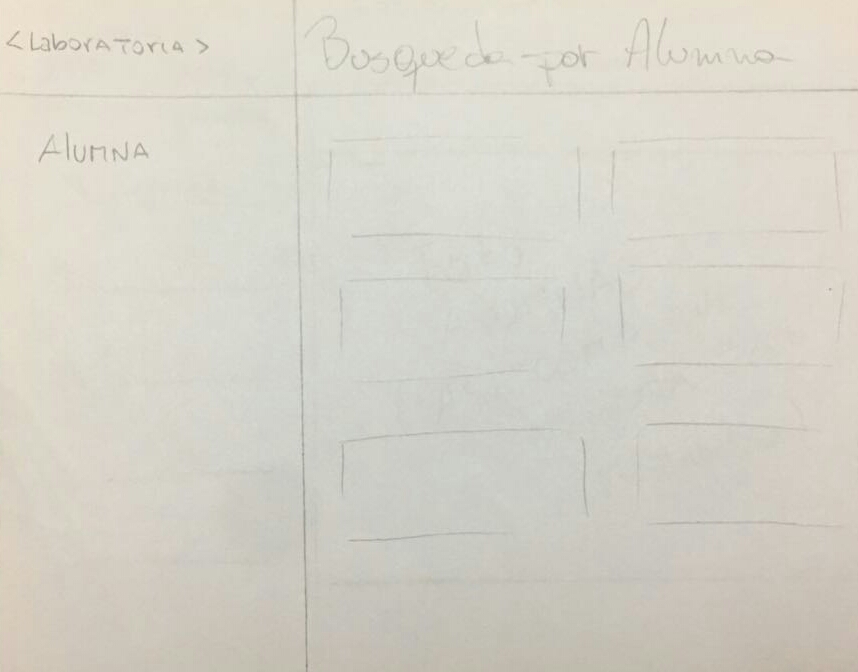 <LABORATORIA>
Busqueda por Alumna
ALUMNA